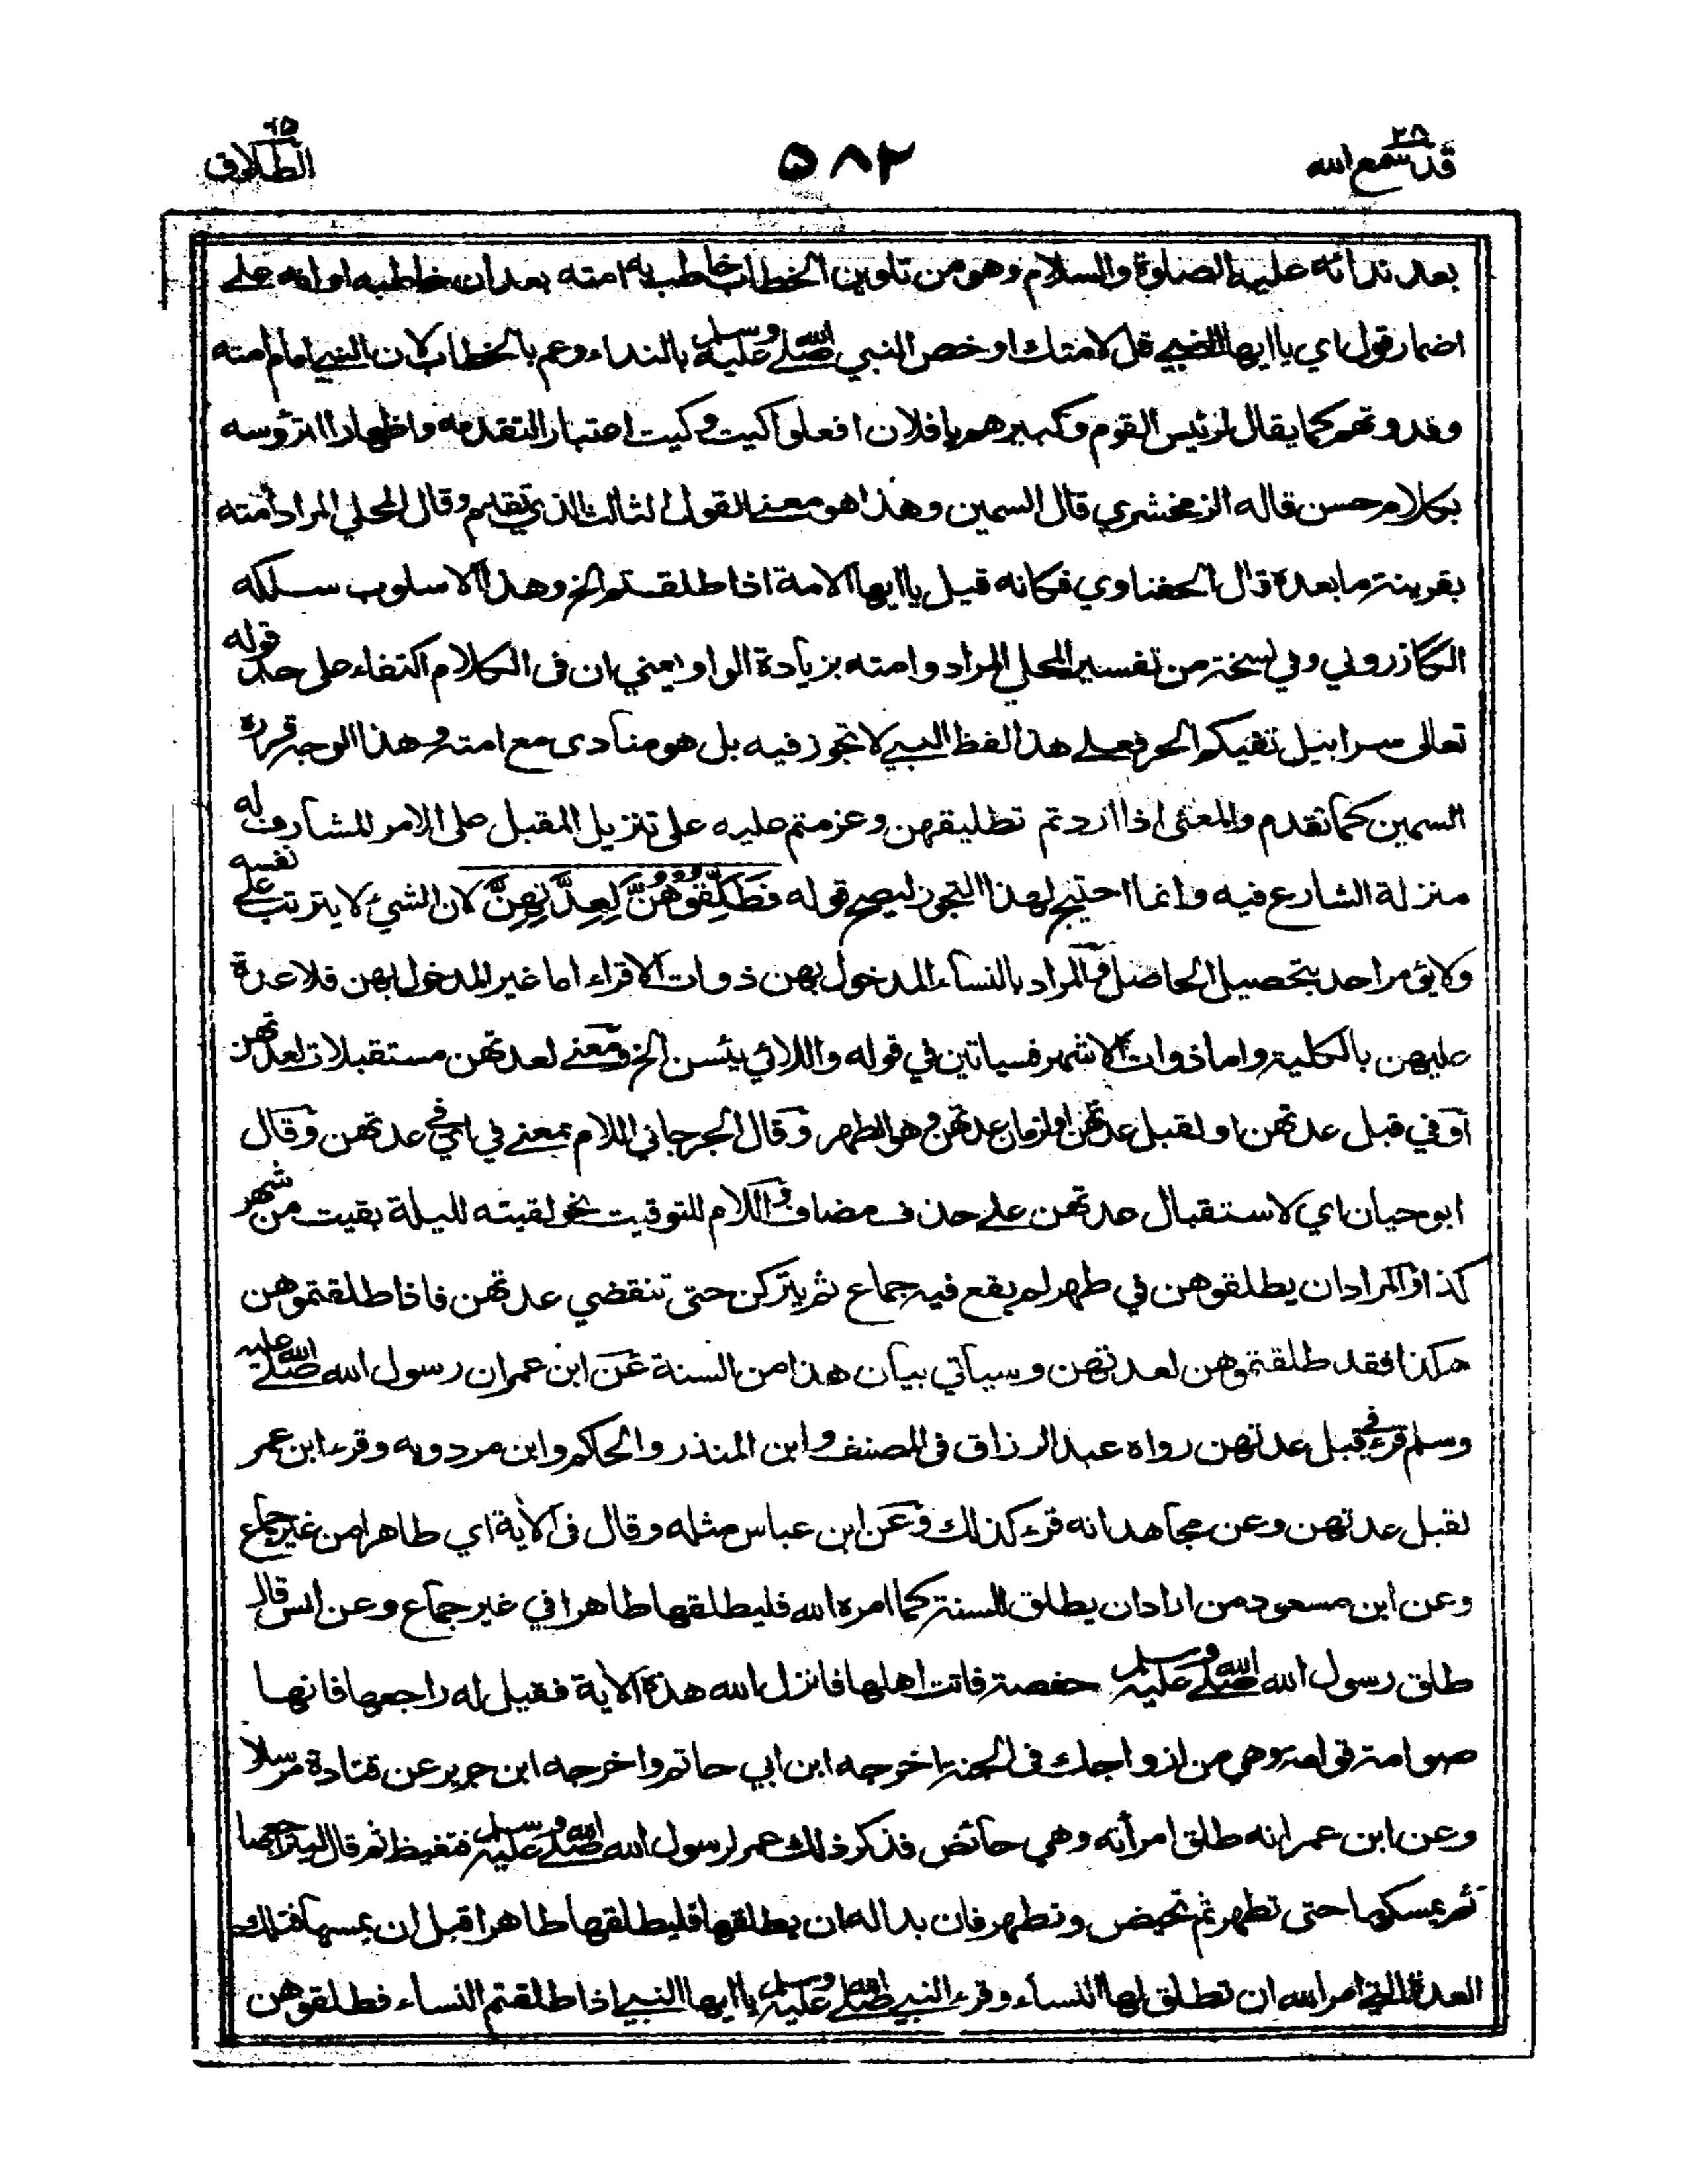 قد سمع الله ٢٨
٥٨٢
الطلاق ٦٥
بعد ندائه عليه الصلوة والسلام وهو من تلوين الخطاب خاطب به امته بعد ان خاطبه او انه على
اضمار قول اي يا ايها النبي قل لامتك او خص النبي صلى الله عليه وسلم بالنداء وعم بالخطاب لان النبي امام امته
وقدوتهم كما يقال لرئيس القوم وكبيرهم يا فلان افعلوا كيت وكيت اعتبارا لتقدمه واظهارا لترؤسه
بكلام حسن قاله الزمخشري قال السمين وهذا هو معنى القول الثالث الذي تقدم وقال المحلي المراد أمته
بقرينة ما بعده قال الحفناوي فكانه قيل يا ايها الامة اذا طلقتم الخ وهذا الاسلوب سلكه
الكازروني وفي نسخة من تفسير المحلي المراد وامته بزيادة الواو يعني ان فى الكلام اكتفاء على حد قوله
تعالى سرابيل تقيكم الحر فعلى هذا لفظ النبي لا تجوز فيه بل هو منادى مع امته وهذا الوجه قرره
السمين كما تقدم والمعنى اذا اردتم تطليقهن وعزمتم عليه على تنزيل المقبل على الامر المشارف له
منزلة الشارع فيه وانما احتيج لهذا التجوز ليصح قوله فَطَلِّقُوْهُنَّ لِعِدَّتِهِنَّ لان الشيء لا يترتب على نفسه
ولا يؤمر احد بتحصيل الحاصل والمراد بالنساء المدخول بهن ذوات الاقراء اما غير المدخول بهن فلا عدة
عليهن بالكلية واما ذوات الاشهر فسياتين في قوله واللائي يئسن الخ ومعنى لعدتهن مستقبلات لعدتهن
او في قبل عدتهن او لقبل عدتهن او لزمان عدتهن وهو الطهر وقال الجرجاني اللام بمعنى في اي في عدتهن وقال
ابو حيان اي لاستقبال عدتهن على حذف مضاف واللام للتوقيت نحو لقيته لليلة بقيت من شهر
كذا والمراد ان يطلقوهن في طهر لم يقع فيه جماع ثم يتركن حتى تنقضي عدتهن فاذا طلقتموهن
هكذا فقد طلقتموهن لعدتهن وسيأتي بيان هذا من السنة عن ابن عمر ان رسول الله صلى الله عليه
وسلم قرء في قبل عدتهن رواه عبد الرزاق فى المصنف وابن المنذر والحاكم وابن مردويه وقرء ابن عمر
لقبل عدتهن وعن مجاهد انه قرء كذلك وعن ابن عباس مثله وقال فى الأية اي طاهرا من غير جماع
وعن ابن مسعود من اراد ان يطلق للسنة كما امره الله فليطلقها طاهرا في غير جماع وعن انس قال
طلق رسول الله صلى الله عليه وسلم حفصة فاتت اهلها فانزل الله هذه الاية فقيل له راجعها فانها
صوامة قوامة وهي من ازواجك فى الجنة اخرجه ابن ابي حاتم واخرجه ابن جرير عن قتادة مرسلا
وعن ابن عمر انه طلق امرأته وهي حائض فذكر ذلك عمر لرسول الله صلى الله عليه وسلم فتغيظ ثم قال ليراجعها
ثم يمسكها حتى تطهر ثم تحيض وتطهر فان بدا له ان يطلقها فليطلقها طاهرا قبل ان يمسها فتلك
العدة التي امر الله ان تطلق لها النساء وقرء النبي صلى الله عليه وسلم يا ايها النبي اذا طلقتم النساء فطلقوهن